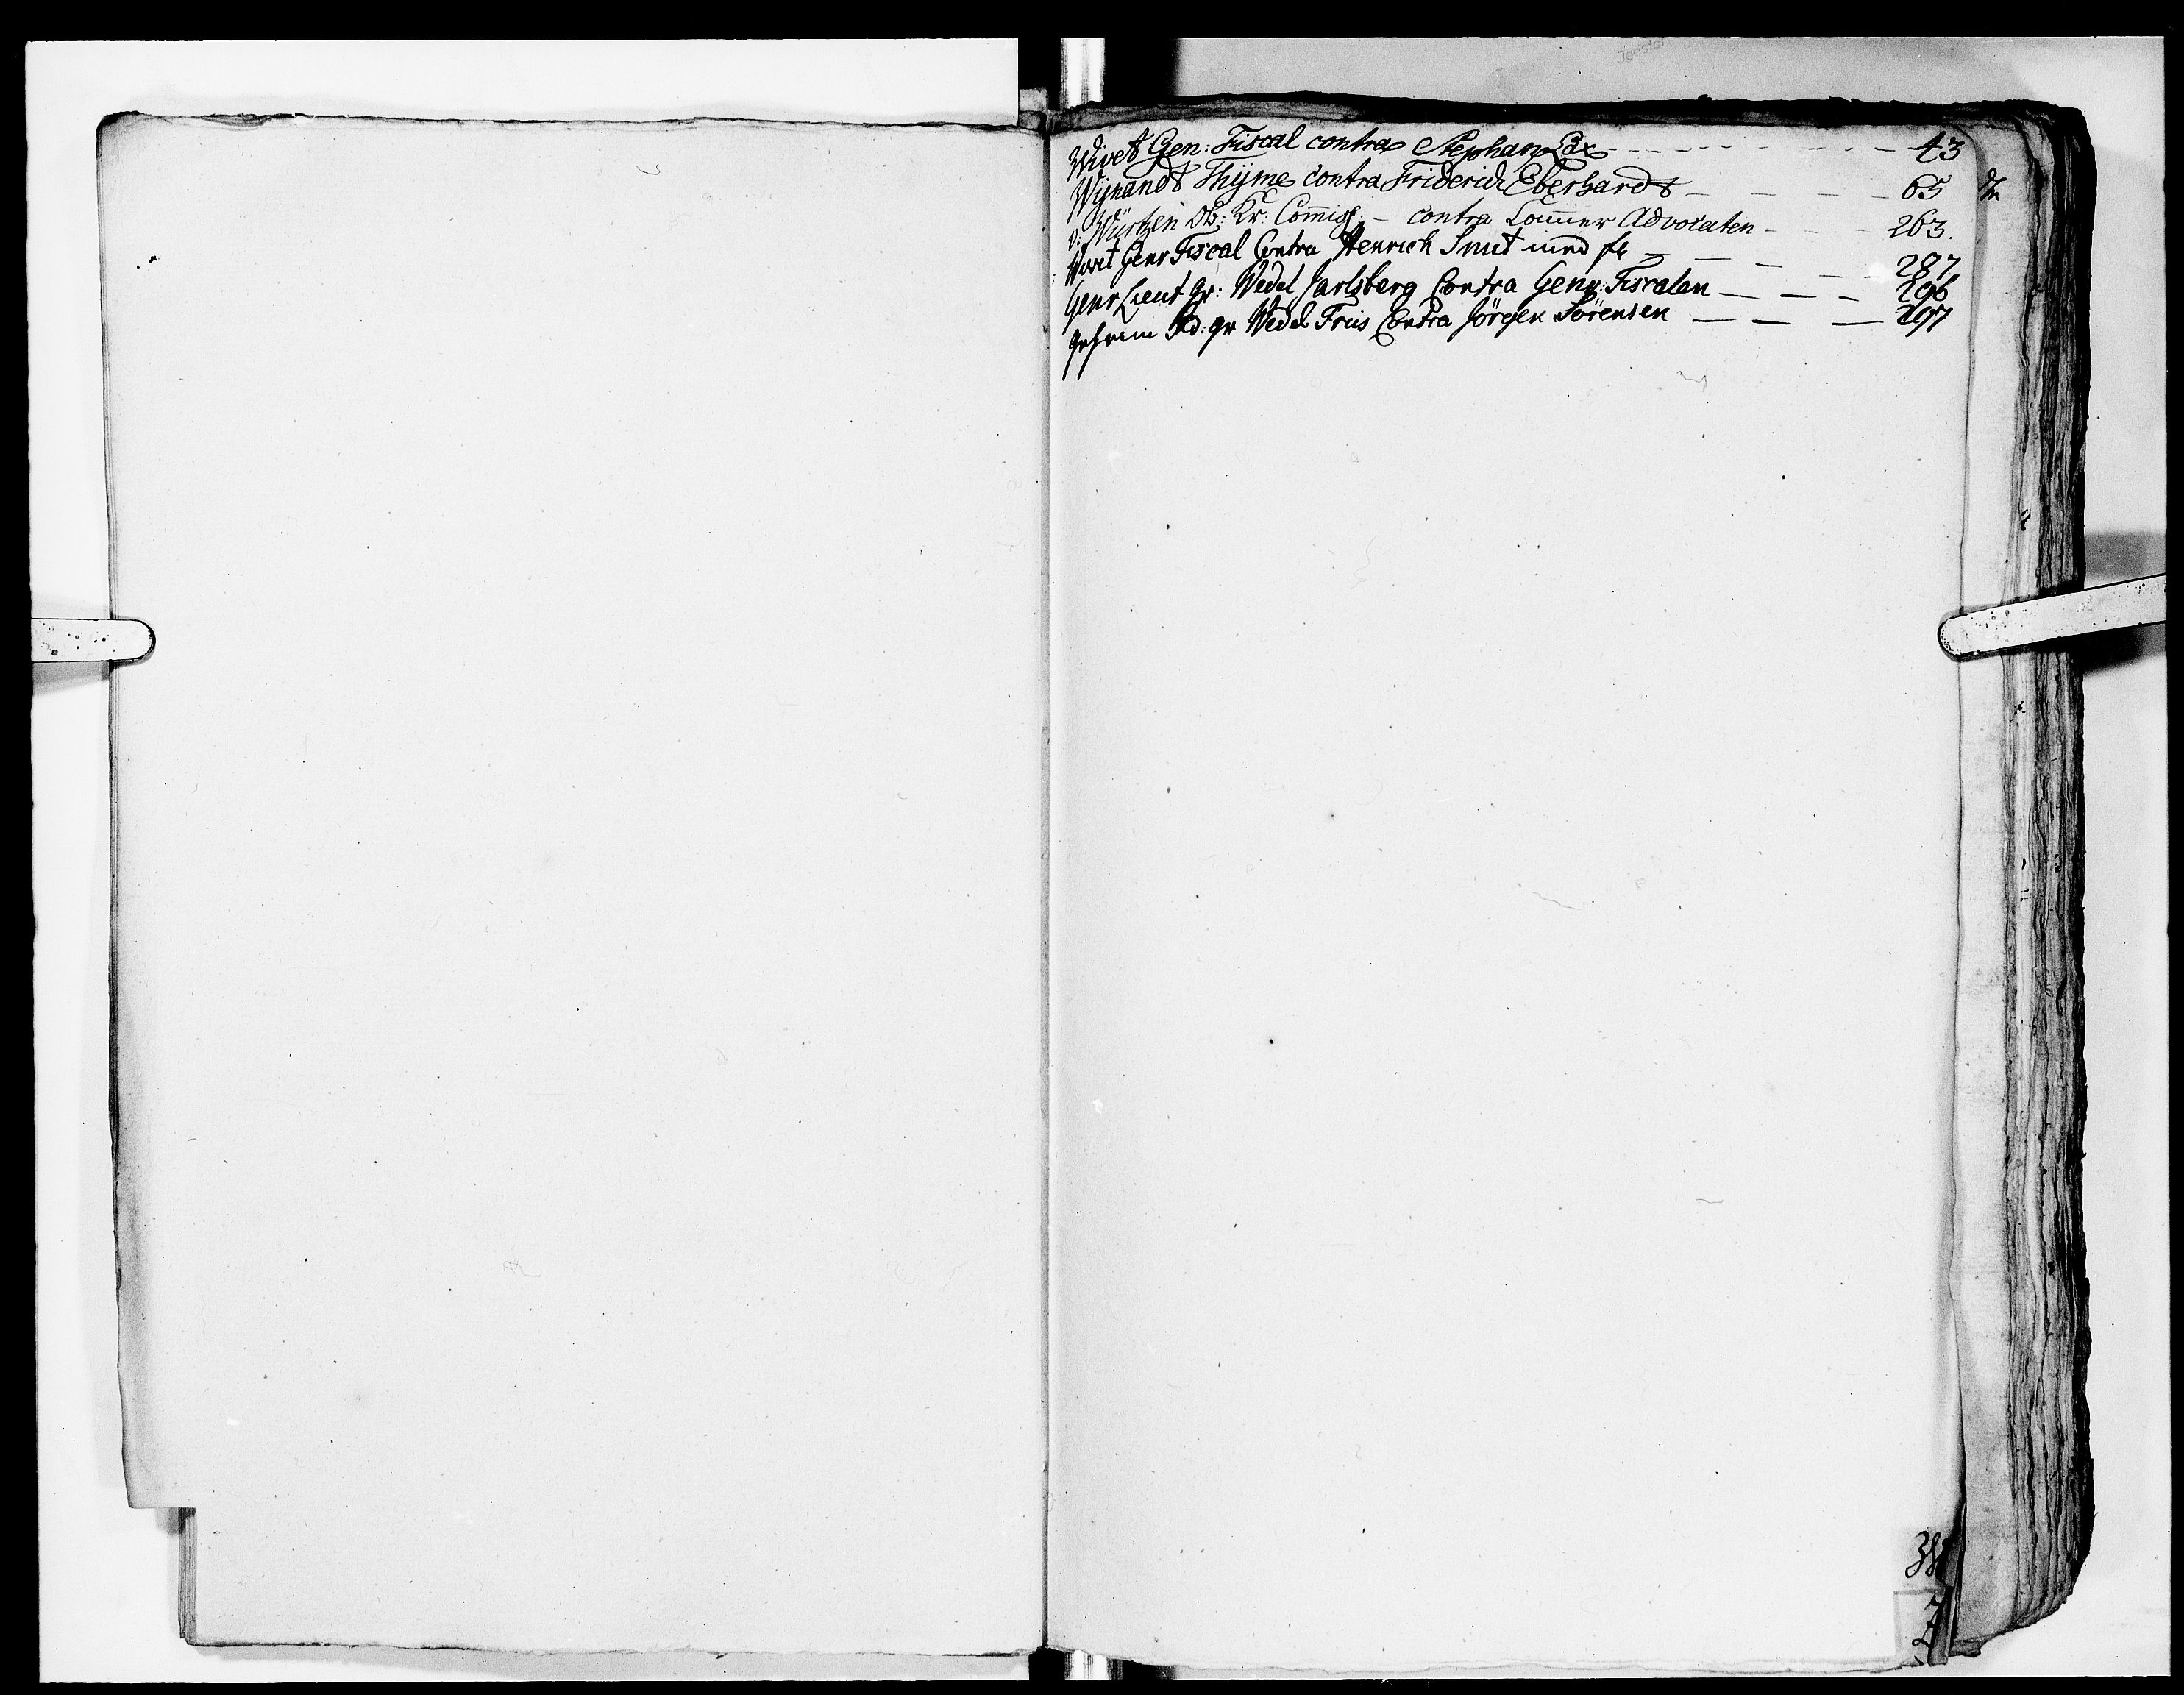 Wivet Gen: Fiscal contra Stephan Lax - - - - - - - - 43
Wijnandt Thijme contra Friderich Eberhardt - - - - 65
v: Würtzen Ob: Kr: Commiss: - contra Cammer Advocaten - - - 263.
Wivet Genr Fiscal Contra Henrich Smit med fl - - - - 287
Genr Lieut gr: Wedel Jarlsberg Contra Genr: Fiscalen - - - 296
geheim Rd: gr Wedel Friis Contra Jörgen Sörensen - - - 297